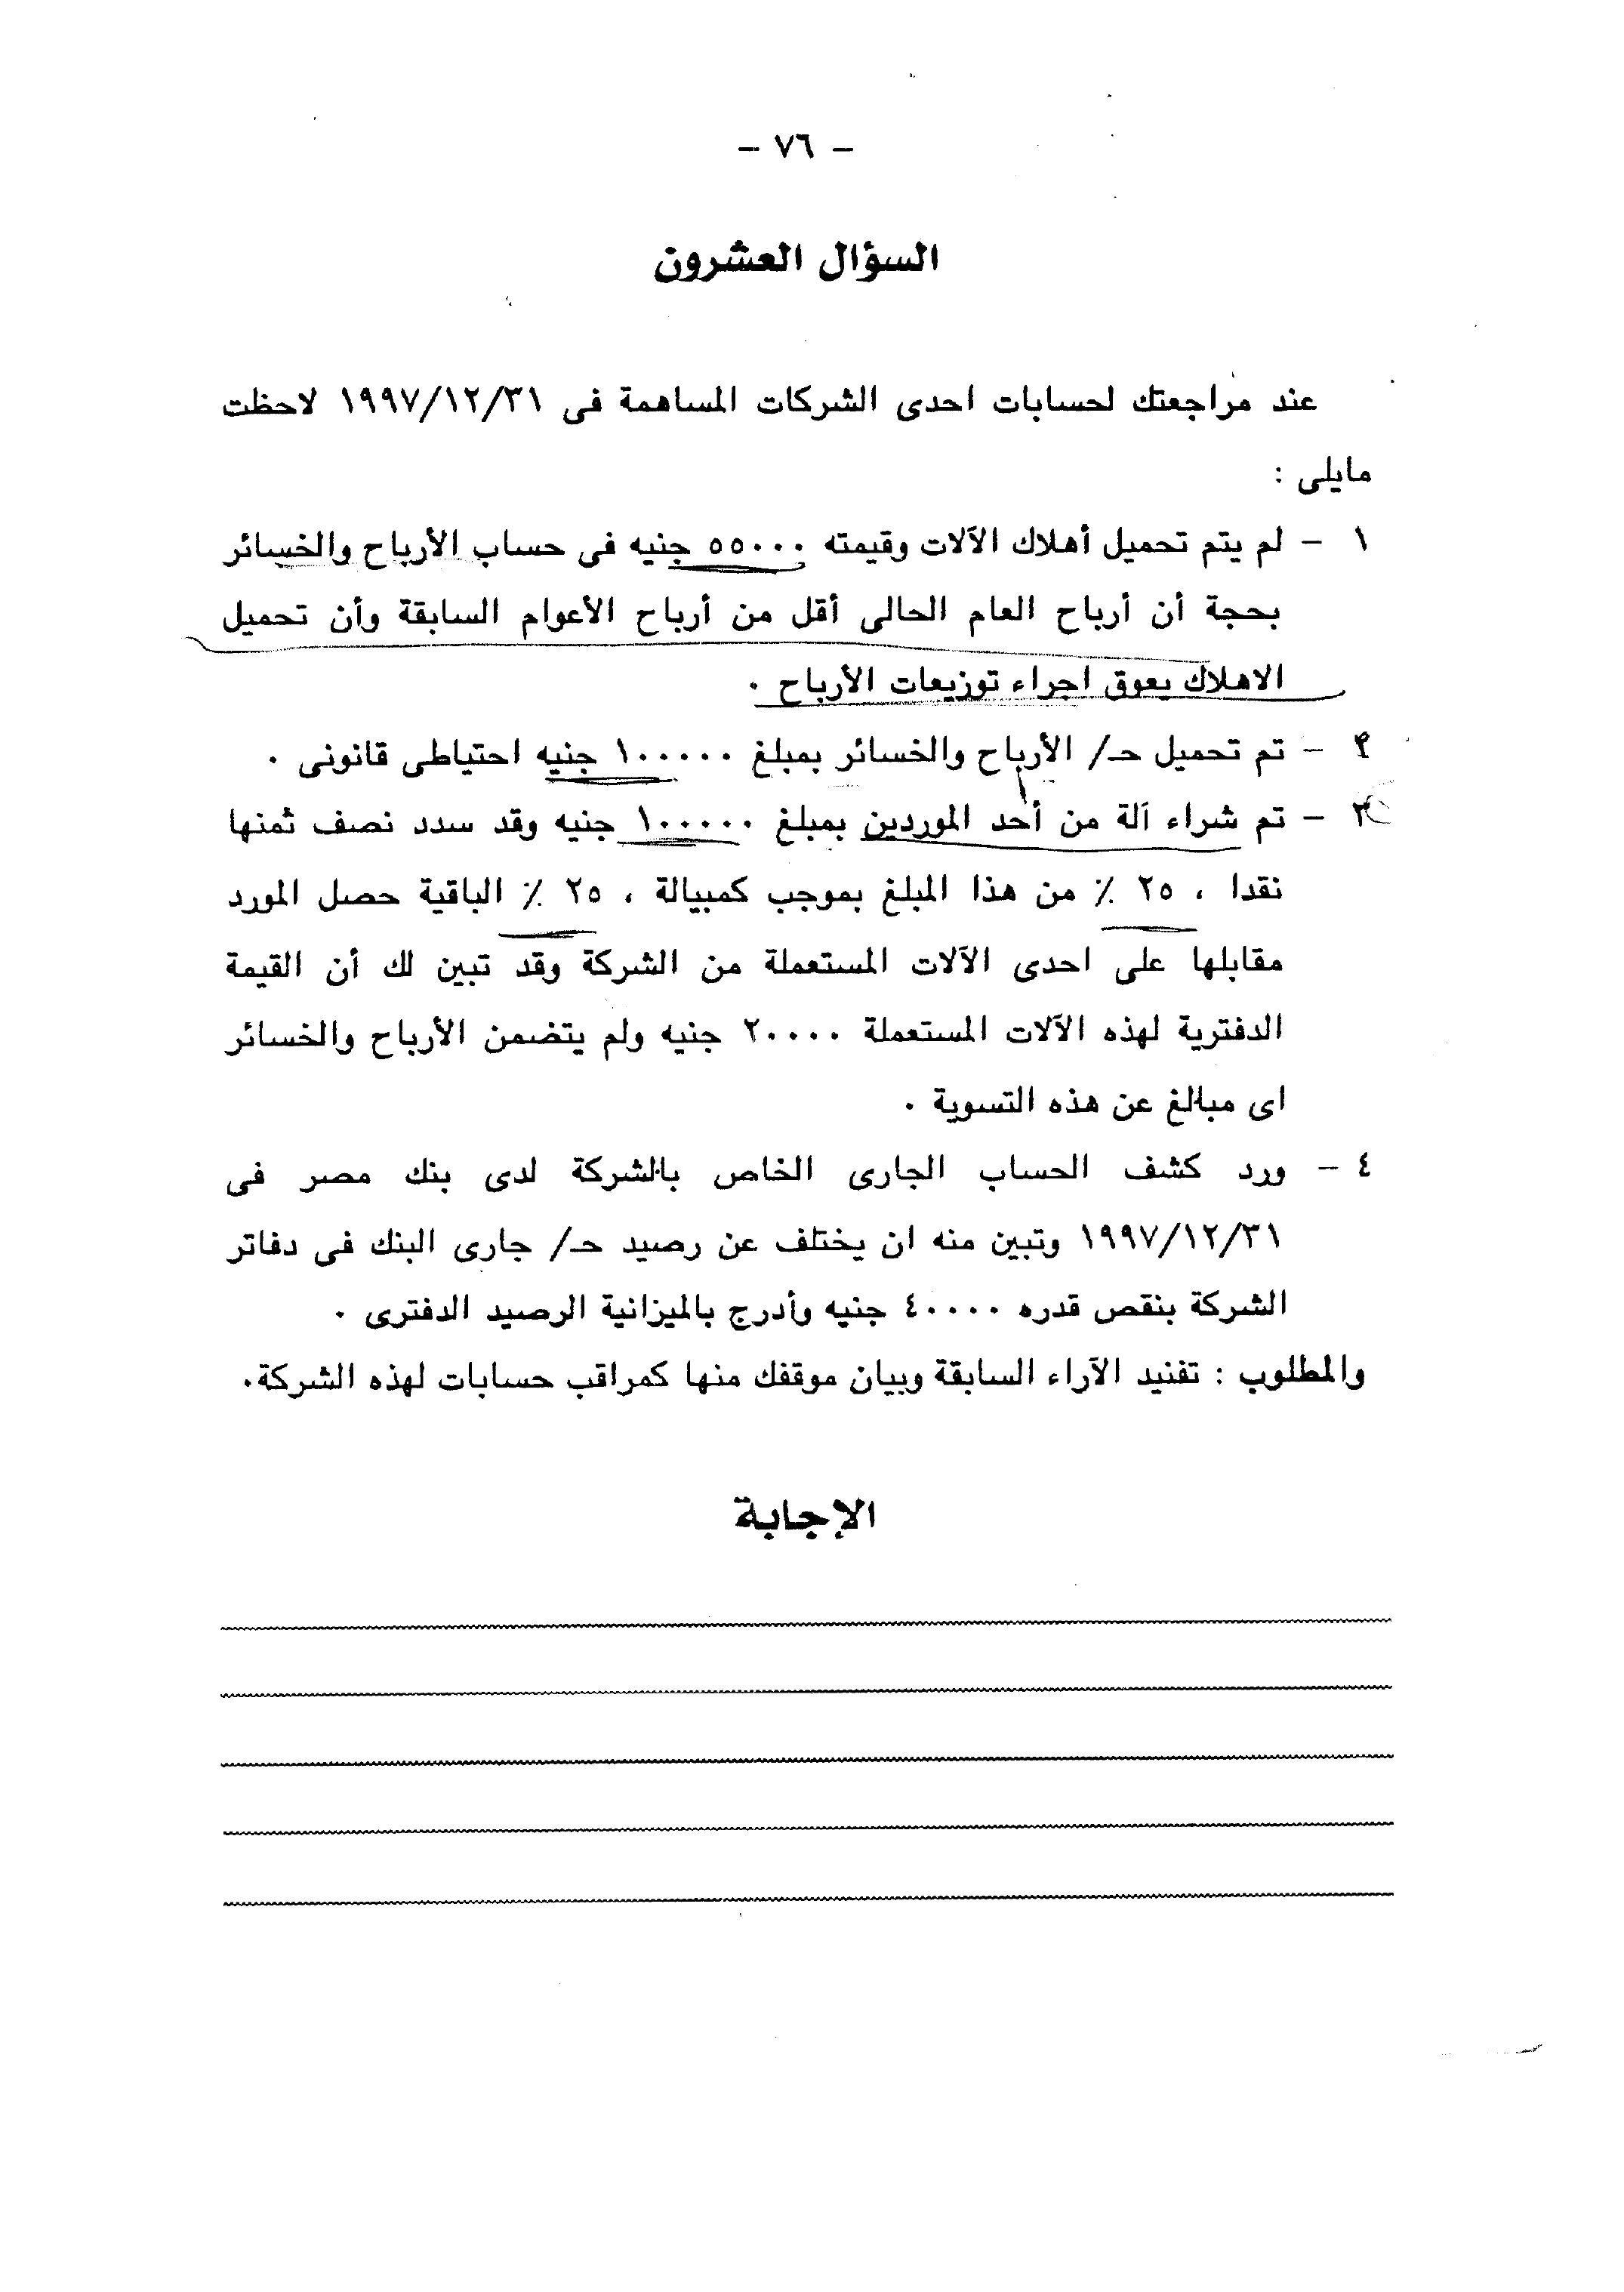 - ٧٦ -
السؤال العشرون
عند مراجعتك لحسابات احدى الشركات المساهمة فى ١٩٩٧/١٢/٣١ لاحظت
مايلى :
١ - لم يتم تحميل أهلاك الآلات وقيمته ٥٥٠٠٠ جنيه فى حساب الأرباح والخسائر
بحجة أن أرباح العام الحالى أقل من أرباح الأعوام السابقة وأن تحميل
الاهلاك يعوق اجراء توزيعات الأرباح .
٢ - تم تحميل حـ/ الأرباح والخسائر بمبلغ ١٠٠٠٠٠ جنيه احتياطى قانونى .
٣ - تم شراء آلة من أحد الموردين بمبلغ ١٠٠٠٠٠ جنيه وقد سدد نصف ثمنها
نقدا ، ٢٥ ٪ من هذا المبلغ بموجب كمبيالة ، ٢٥ ٪ الباقية حصل المورد
مقابلها على احدى الآلات المستعملة من الشركة وقد تبين لك أن القيمة
الدفترية لهذه الآلات المستعملة ٢٠٠٠٠ جنيه ولم يتضمن الأرباح والخسائر
اى مبالغ عن هذه التسوية .
٤ - ورد كشف الحساب الجارى الخاص بالشركة لدى بنك مصر فى
١٩٩٧/١٢/٣١ وتبين منه ان يختلف عن رصيد حـ/ جارى البنك فى دفاتر
الشركة بنقص قدره ٤٠٠٠٠ جنيه وأدرج بالميزانية الرصيد الدفترى .
والمطلوب : تفنيد الآراء السابقة وبيان موقفك منها كمراقب حسابات لهذه الشركة.
الإجابة